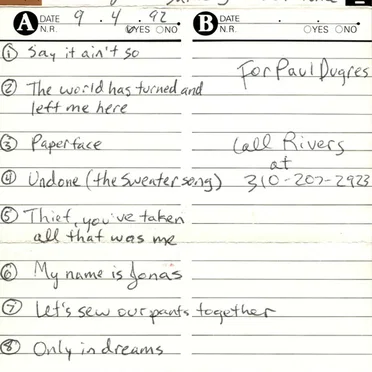 A DATE 9.4.92.
N.R. YES NO
① Say it ain't so
② The world has turned and
left me here
③ Paperface
④ Undone (the sweater song)
⑤ Thief, you've taken
all that was me
⑥ My name is Jonas
⑦ Let's sew our pants together
⑧ Only in dreams
B DATE . .
N.R. YES NO
For Paul Dugres
Call Rivers
at
310-207-2923